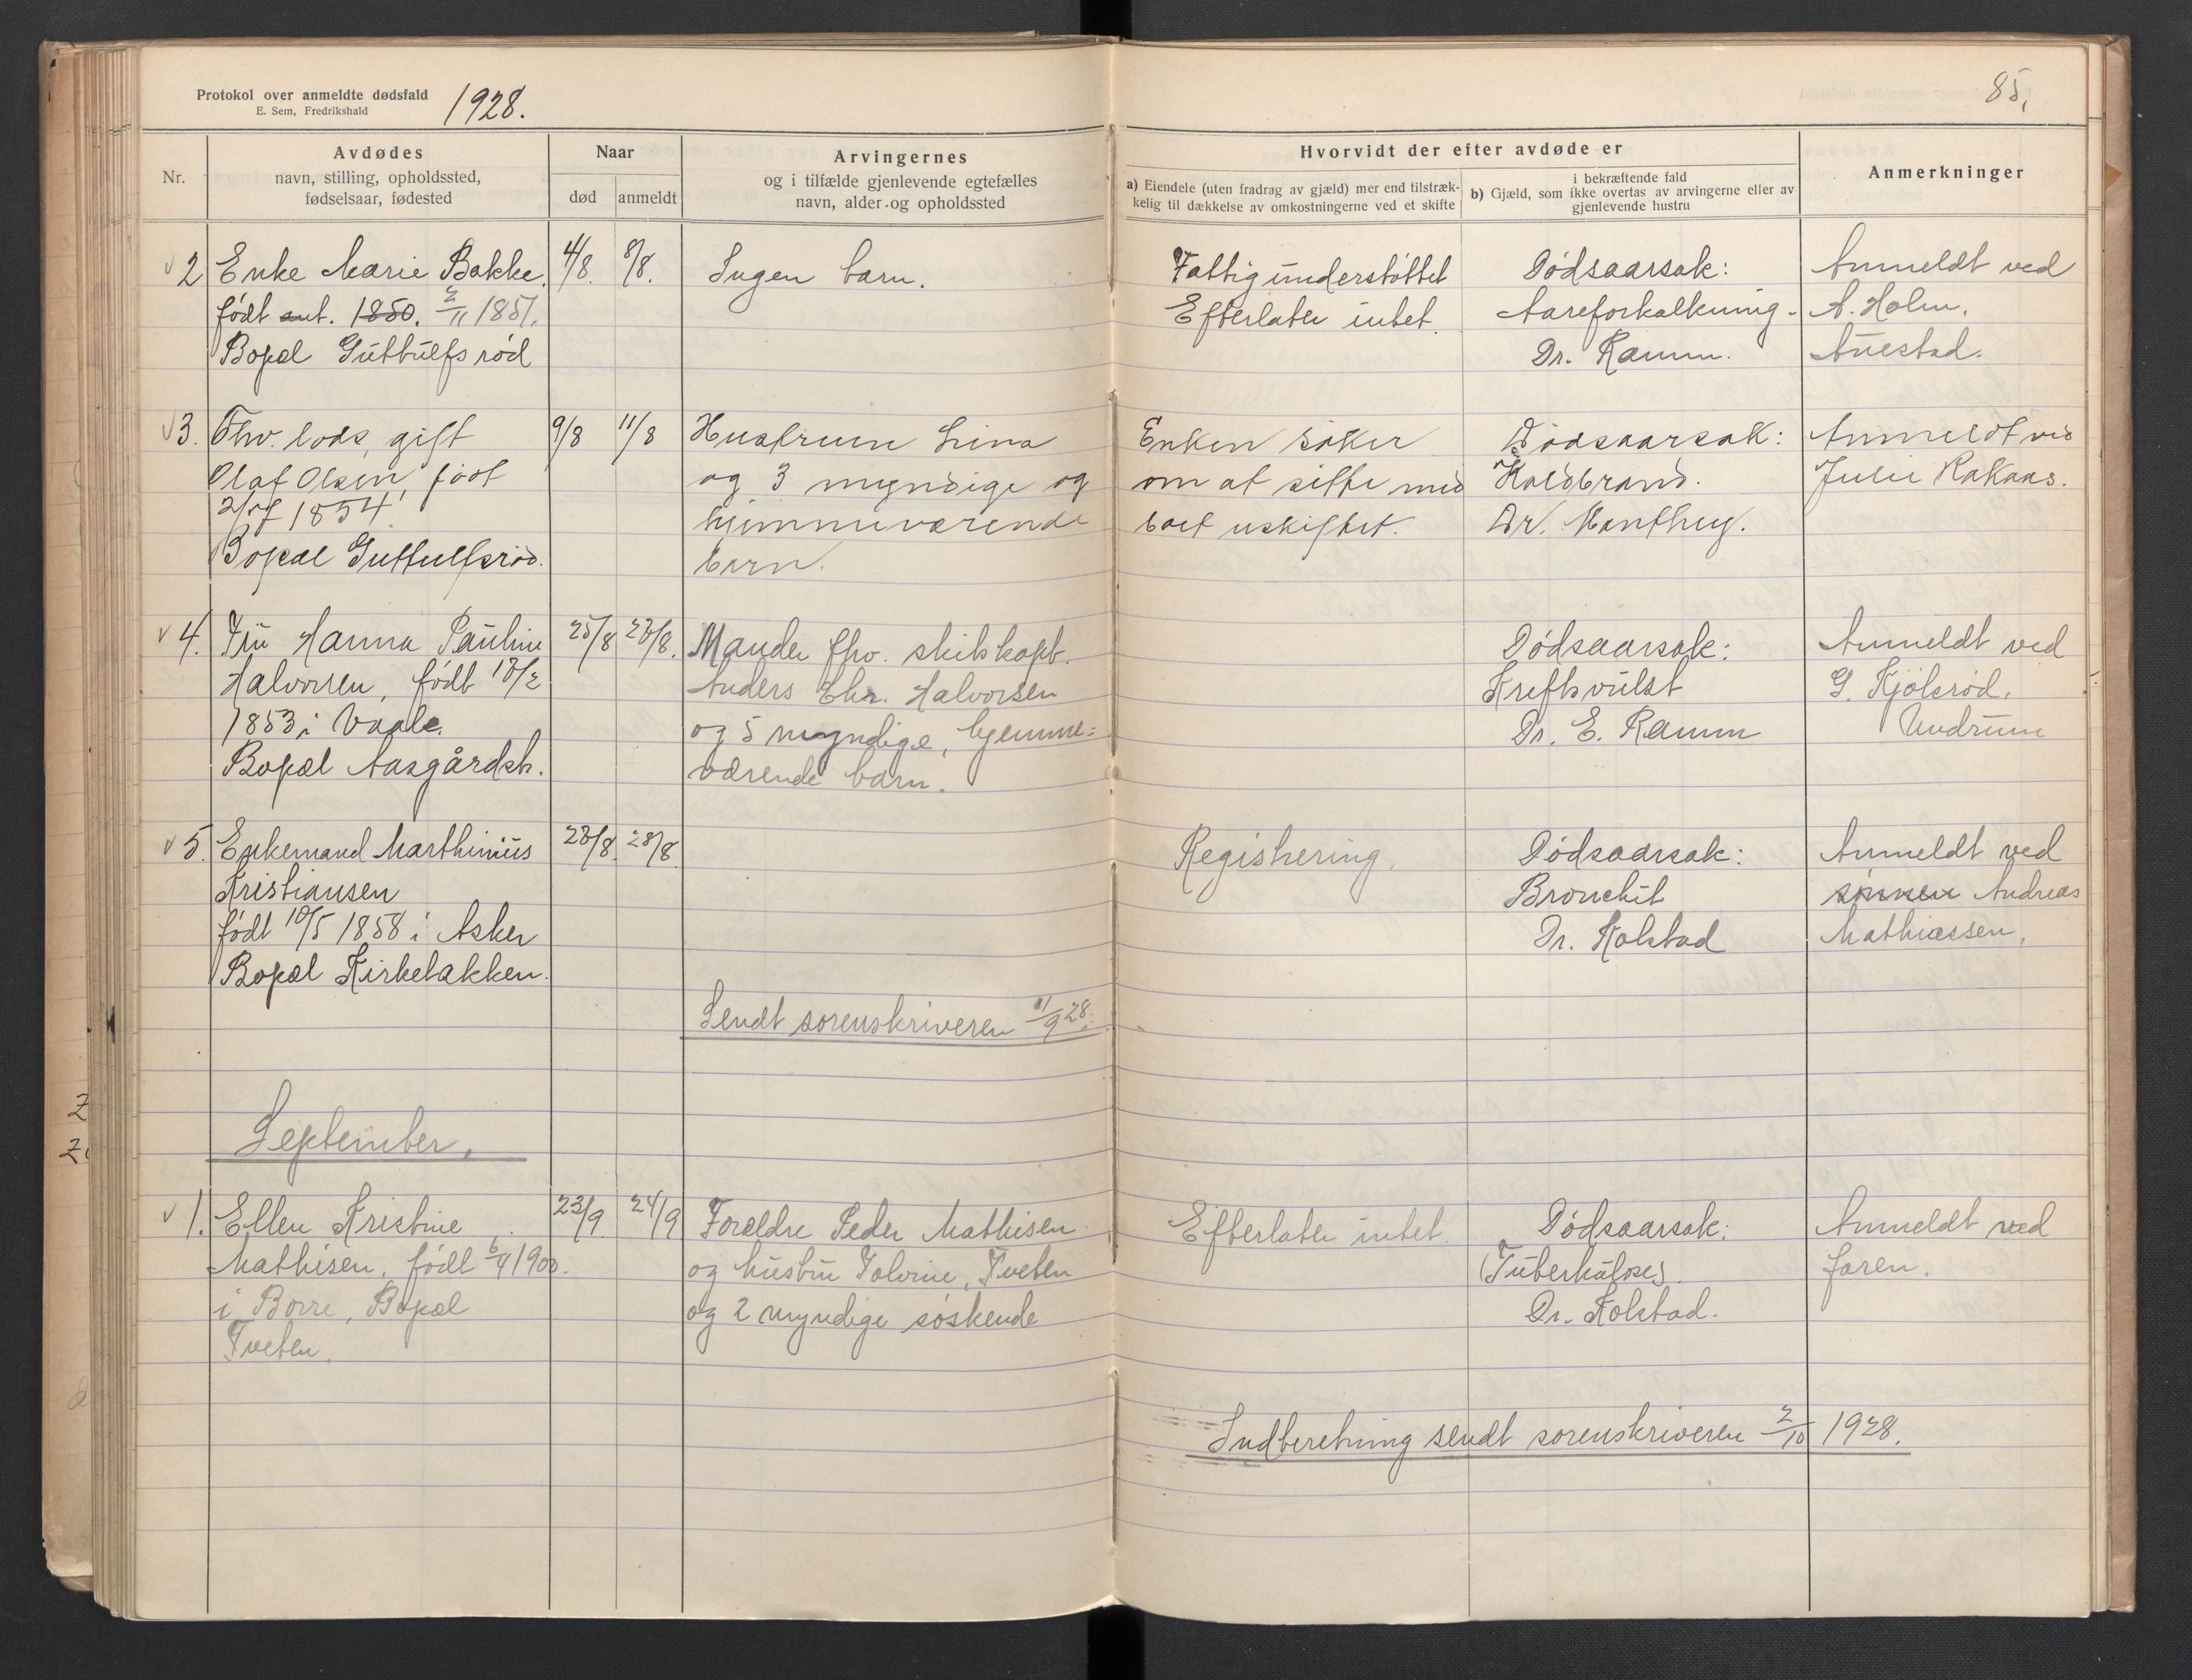 Protokol over anmeldte dødsfald
E. Sem, Fredrikshald
1928.
85,
Nr.
Avdødes
navn, stilling, opholdssted,
fødselsaar, fødested
Naar
død
anmeldt
Arvingernes
og i tilfælde gjenlevende egtefælles
navn, alder og opholdssted
Hvorvidt der efter avdøde er
a) Eiendele (uten fradrag av gjæld) mer end tilstræk-
kelig til dækkelse av omkostningerne ved et skifte
i bekræftende fald
b) Gjæld, som ikke overtas av arvingerne eller av
gjenlevende hustru
Anmerkninger
2 Enke Marie Bakke.
født ant. 1850. 2/11 1851.
Bopæl Guttulfsrød
4/8. 8/8.
Ingen barn.
Fattigunderstøttet
Efterlater intet.
Dødsaarsak:
Aareforkalkning.
Dr. Ramm.
Anmeldt ved
A. Holm.
Auestad.
3. Fhv. lods, gift
Olaf Olsen, født
1854.
Bopæl Guttulfsrød.
9/8 11/8
Hustruen Lina
og 3 myndige og
hjemmeværende
barn.
Enken søker
om at sitte med
boet uskiftet.
Dødsaarsak:
Koldbrand.
Dr. Manthey.
Anmeldt ved
Julie Rakaas.
4. Fru Hanna Pauline
Halvorsen, født 18/2
1853 i Vaale.
Bopæl Aasgårdstr.
25/8 28/8.
Manden fhv. skibskapt.
Anders Chr. Halvorsen
og 5 myndige, hjemme=
værende barn.
Dødsaarsak:
Kreftsvulst
Dr. E. Ramm
Anmeldt ved
G. Kjølsrød.
Undrum
5. Enkemand Marthinius
Kristiansen
født 10/5 1858 i Asker
Bopæl Kirkebakken.
28/8. 28/8.
Registrering.
Dødsaarsak:
Bronchit
Dr. Kolstad
Anmeldt ved
sønnen Andreas
Mathiassen.
Sendt sorenskriveren 11/9 28.
September.
1. Ellen Kristine
Mathisen, født 6/4 1900.
i Borre, Bopæl
Tveten.
23/9. 24/9
Forældre Peder Mathisen
og hustru Valvine, Tveten
og 2 myndige søskende
Efterlater intet.
Dødsaarsak:
(Tuberkulose)
Dr. Kolstad.
Anmeldt ved
faren.
Indberetning sendt sorenskriveren 2/10 1928.